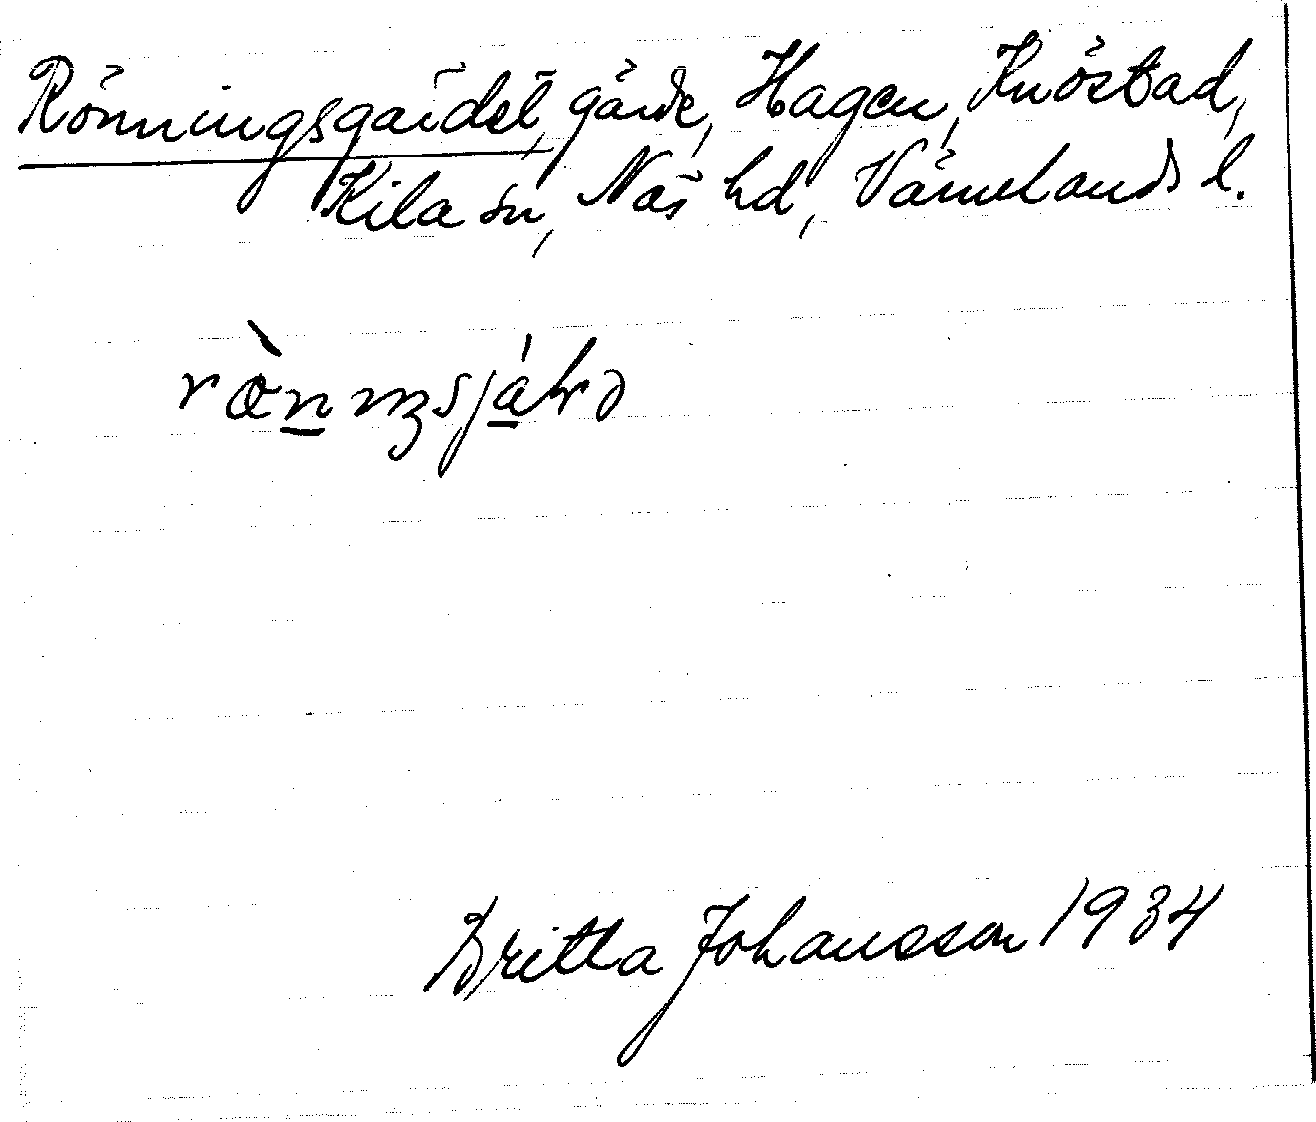 Rönningsgärdet, gärde, Hagen, Knöstad,
Kila sn, Näs hd, Värmlands l.
Britta Johansson 1934